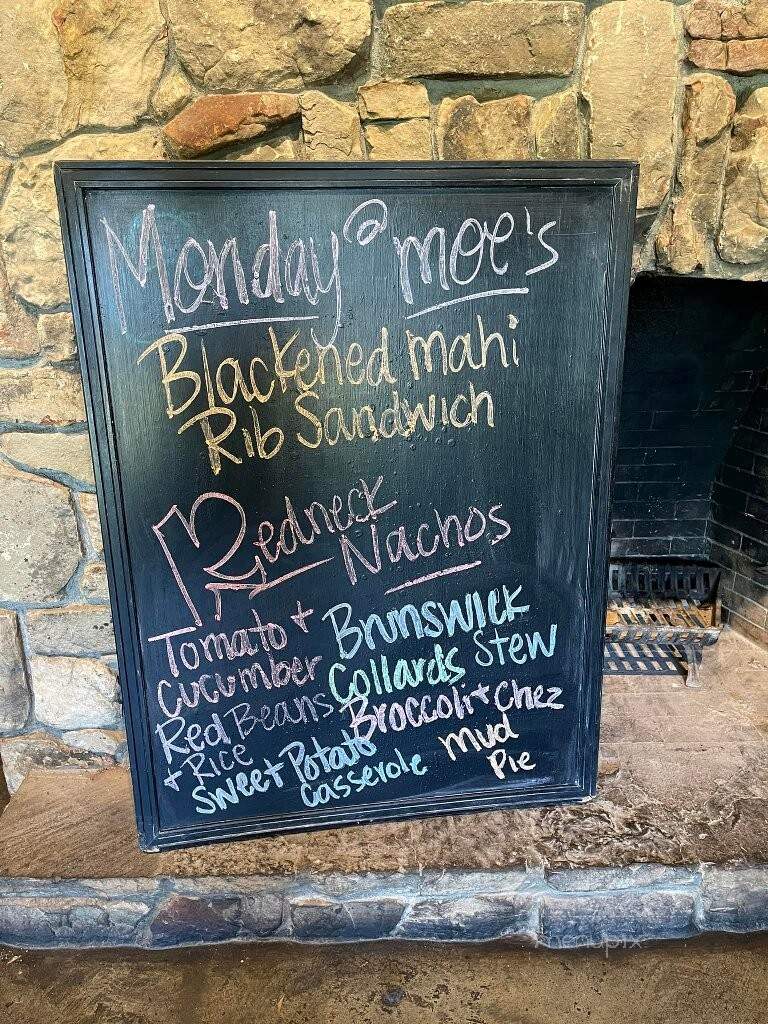 Monday @ moe's
Blackened mahi
Rib Sandwich
Redneck
Nachos
Tomato +
cucumber
Brunswick
Stew
Collards
Red Beans
+ Rice
Broccoli + Chez
Sweet Potato
casserole
mud
Pie
menupix